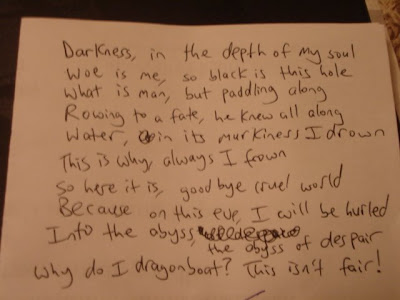 Darkness, in the depth of my soul
Woe is me, so black is this hole
What is man, but paddling along
Rowing to a fate, he knew all along
Water, in its murkiness I drown
This is why, always I frown
So here it is, goodbye cruel world
Because on this eve, I will be hurled
Into the abyss,
the abyss of despair
Why do I dragonboat? This isn't fair!